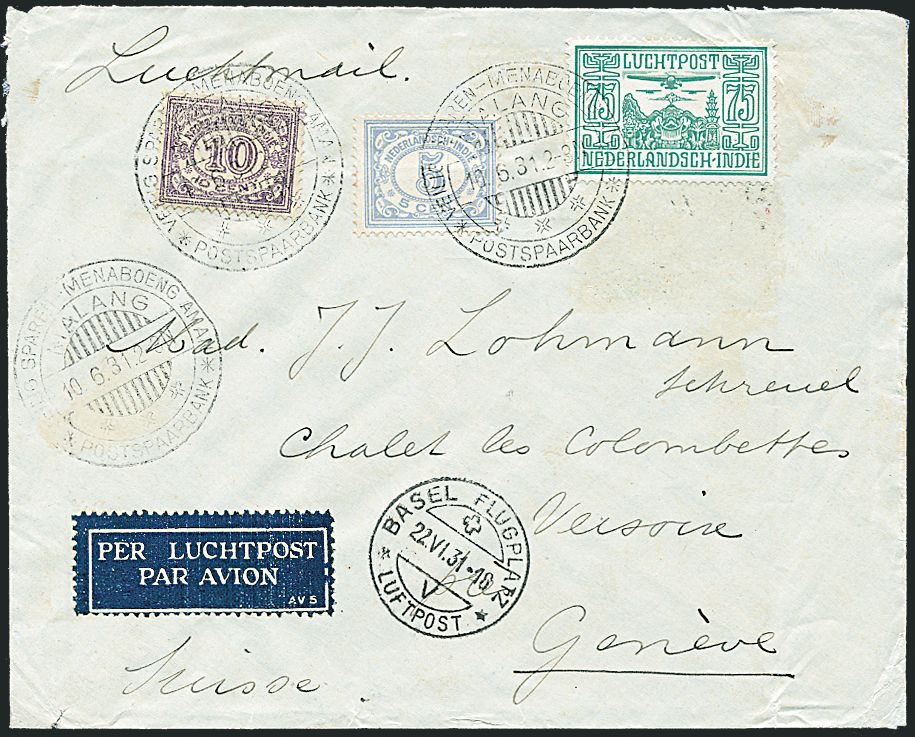 Luchtmail.
LUCHTPOST
75 75
NEDERLANDSCH-INDIE
10
10 CENT
NEDERLANDSCH-INDIE
5
5 CENT
SPAREN-MENABOENG AMAN
MALANG
10.6.31.2-3
* POSTSPAARBANK *
VEILIG SPAREN-MENABOENG
MALANG
10.6.31.2-3
* POSTSPAARBANK *
VEILIG SPAREN-MENABOENG AMAN
MALANG
10.6.31.2
* POSTSPAARBANK *
Mad. J. J. Lohmann
Schreuel
Chalet les Colombettes
Versoix
Genève
Suisse
BASEL FLUGPLATZ
22.VI.31-18
V
* LUFTPOST *
PER LUCHTPOST
PAR AVION
AV5